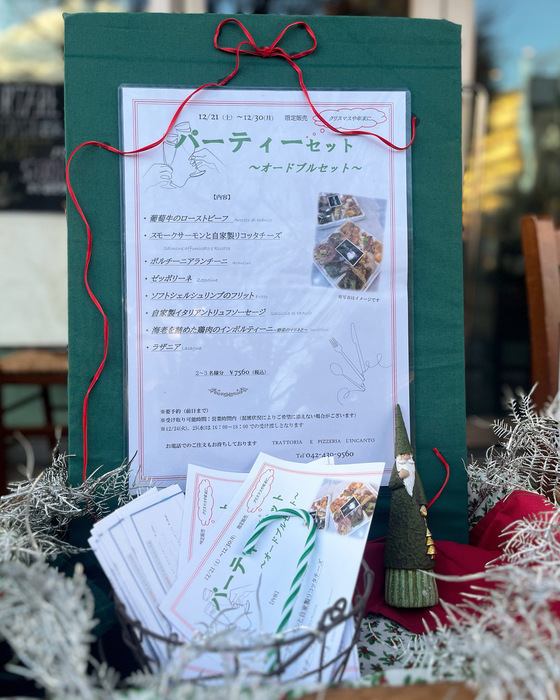 12/21(土)〜12/30(月) 限定販売 クリスマスや年末に…
パーティーセット
〜オードブルセット〜
【内容】
・葡萄牛のローストビーフ
・スモークサーモンと自家製リコッタチーズ
・ポルチーニアランチーニ
・ゼッポリーネ Zeppoline
・ソフトシェルシュリンプのフリット
・自家製イタリアントリュフソーセージ
・海老を詰めた鶏肉のインボルティーニ
・ラザニア Lasagne
※写真はイメージです
2〜3名様分 ¥7560(税込)
※要予約(前日まで)
※受け取り可能時間:営業時間内(混雑状況によりご希望に添えない場合がございます)
お電話でのご注文もお待ちしております TRATTORIA E PIZZERIA L'INCANTO
Tel 042-439-9560
12/21(土)〜12/30(月) 限定販売 クリスマスや年末に…
パーティーセット
〜オードブルセット〜
【内容】